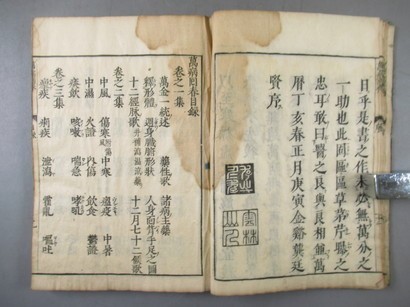 日乎是書之作未必無萬分之
一助也此區區草茅芹曝之
忠耳敢曰醫之良與良相並萬
曆丁亥春正月庚寅金谿龔廷
賢序
雲林
萬病回春目録
卷之一集
萬金一統述 藥性歌 諸病主藥
釋形體 週身臟腑形狀 人身面背手足之圖
十二經脉歌 十二月七十二候歌
卷之二集
中風 傷寒 中寒 瘟疫 中暑
中濕 火證 內傷 飲食 鬱證
痰飲 咳嗽 喘急 哮吼
卷之三集
瘧疾 痢疾 泄瀉 霍亂 嘔吐